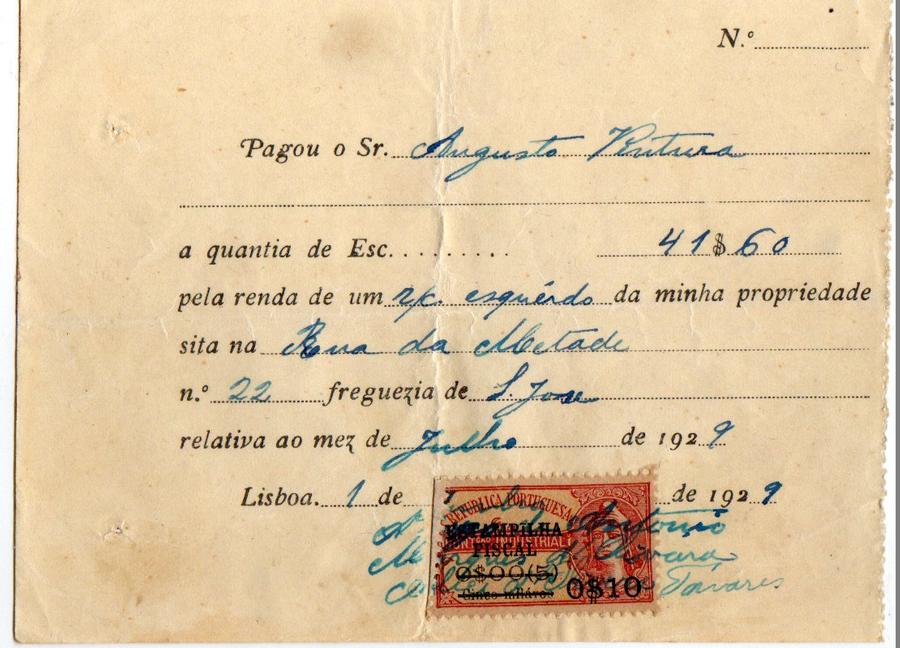 N.º
Pagou o Sr. Augusto Ventura
a quantia de Esc. 41$60
pela renda de um r/c. esquêrdo da minha propriedade
sita na Rua da Metade
n.º 22 freguezia de S. José
relativa ao mez de Julho de 1929
Lisboa. 1 de 7 de 1929
REPUBLICA PORTUGUESA
António
ESTAMPILHA
INDUSTRIAL
FISCAL
0$00(5) 0$10
Cinco miliavos
Tavares